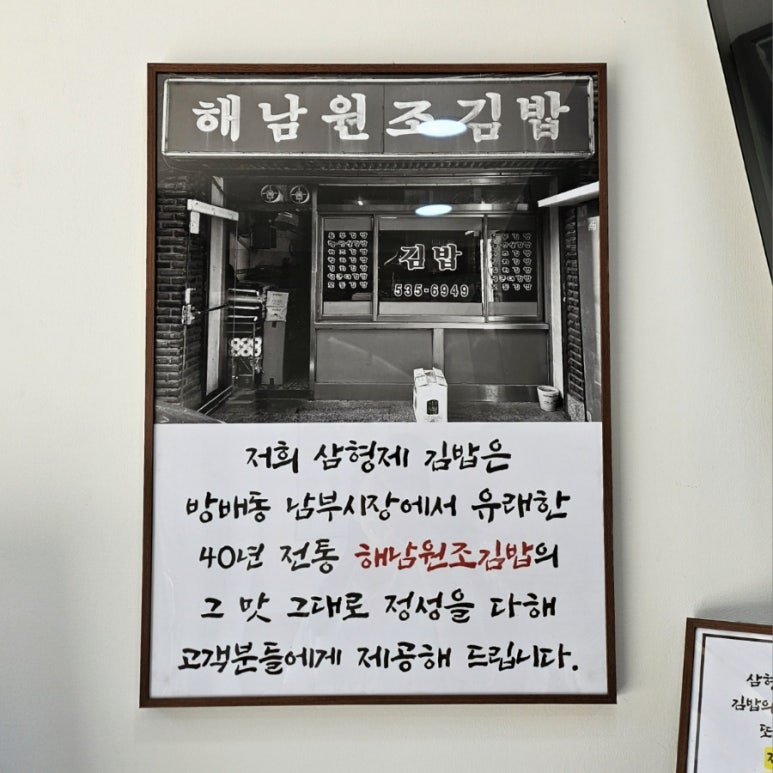 해남원조김밥
김밥
535-6949
저희 삼형제 김밥은
방배동 남부시장에서 유래한
40년 전통 해남원조김밥의
그 맛 그대로 정성을 다해
고객분들에게 제공해 드립니다.
김밥의